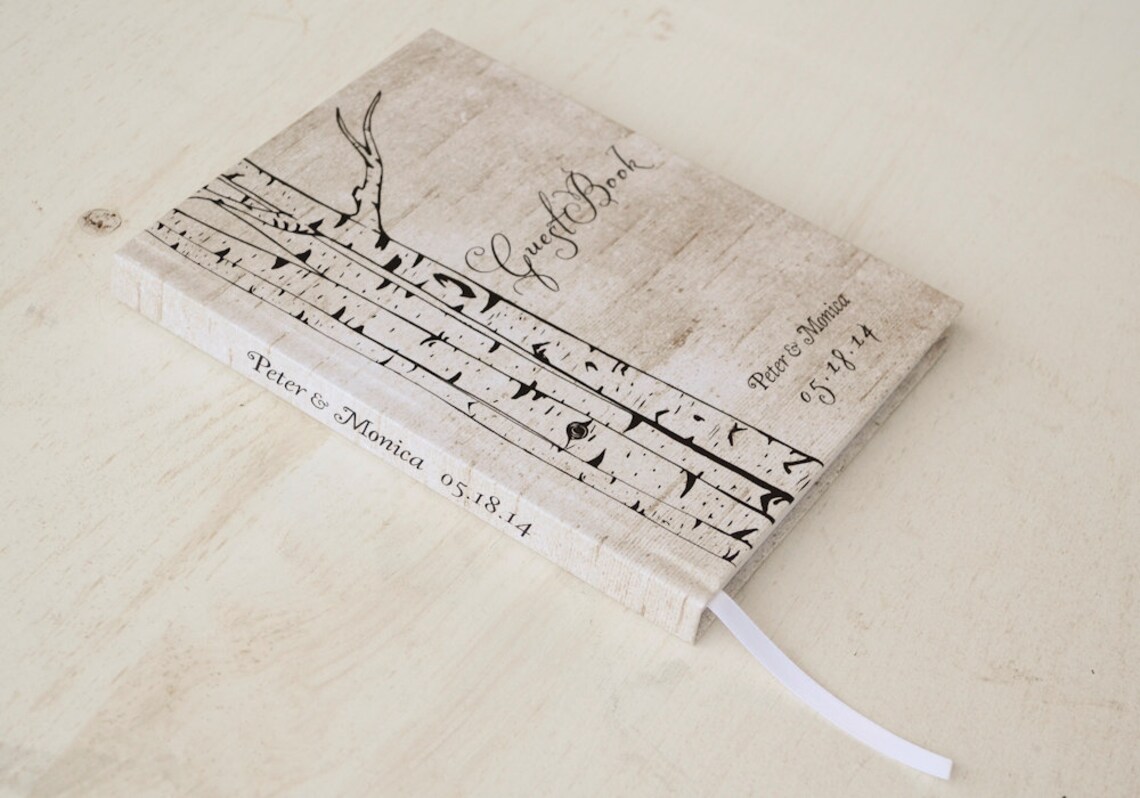 Guest Book
Peter & Monica
05.18.14
Peter & Monica 05.18.14